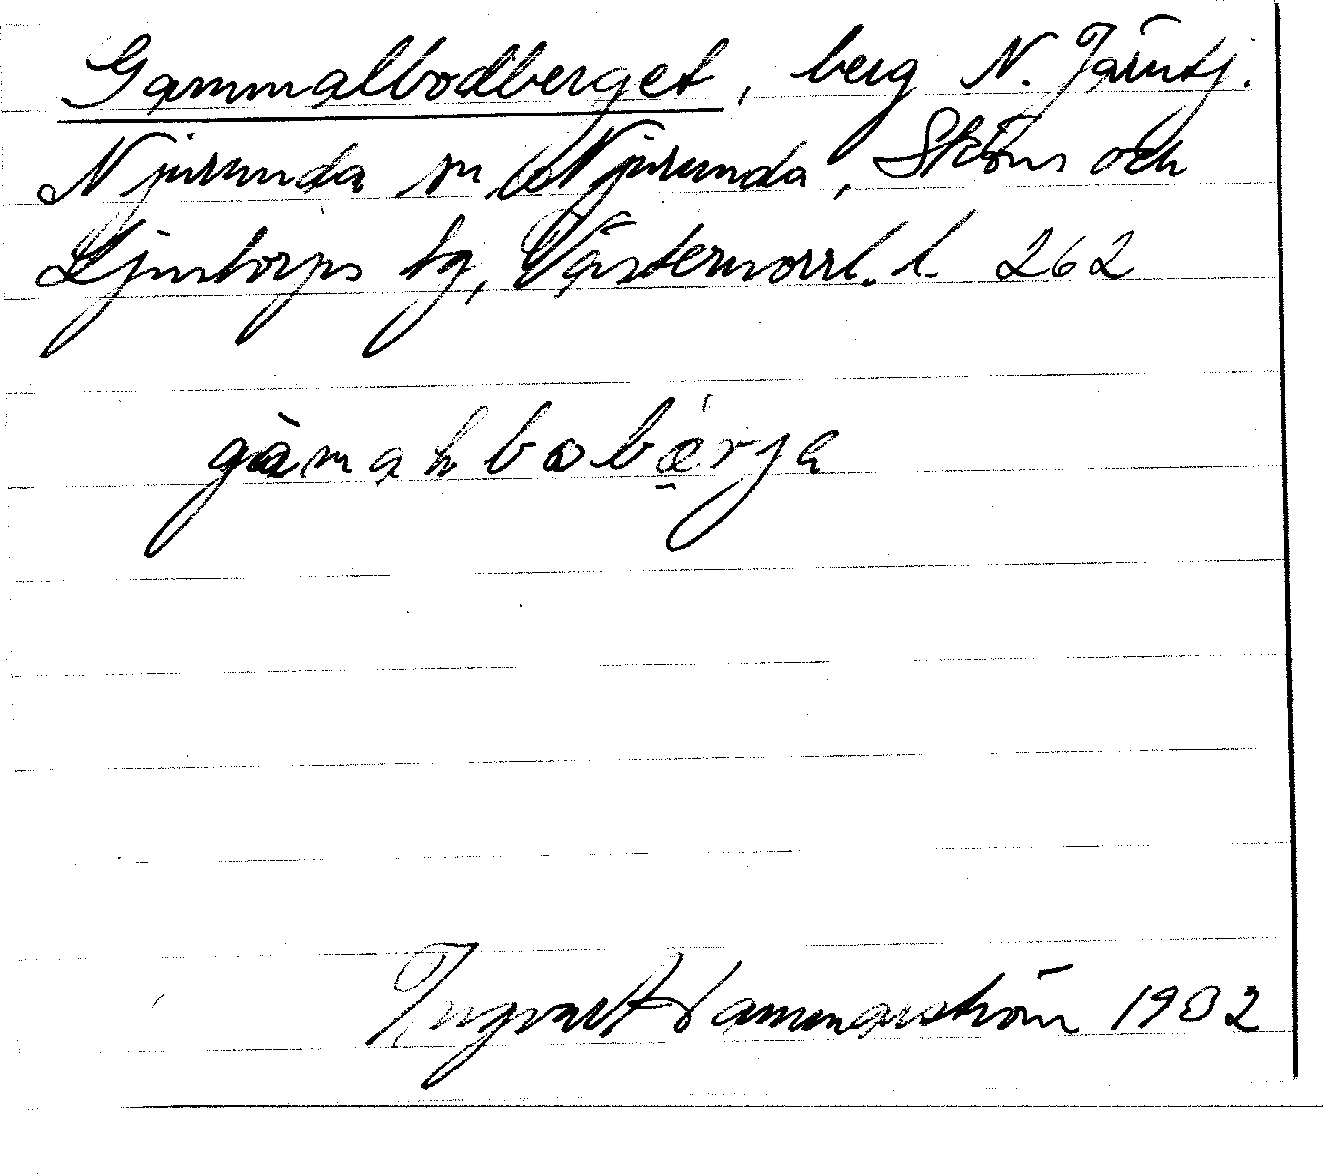 Gammalbodberget, berg N. Järntj.
Njurunda sn Njurunda, Sköns och
Ljustorps tg, Västernorrl. l. 262
gàmalbobærja
Ingvar Hammarström 1932